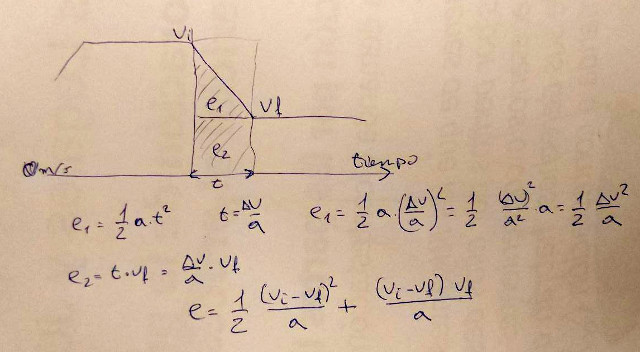 Vi
e₁
Vf
e₂
0m/s
t
tiempo
e₁ = 1/2 a·t²   t = ΔV/a   e₁ = 1/2 a·(ΔV/a)² = 1/2 (ΔV)²/a² ·a = 1/2 ΔV²/a
e₂ = t·Vf = ΔV/a · Vf
e = 1/2 (Vi-Vf)²/a + (Vi-Vf) Vf/a